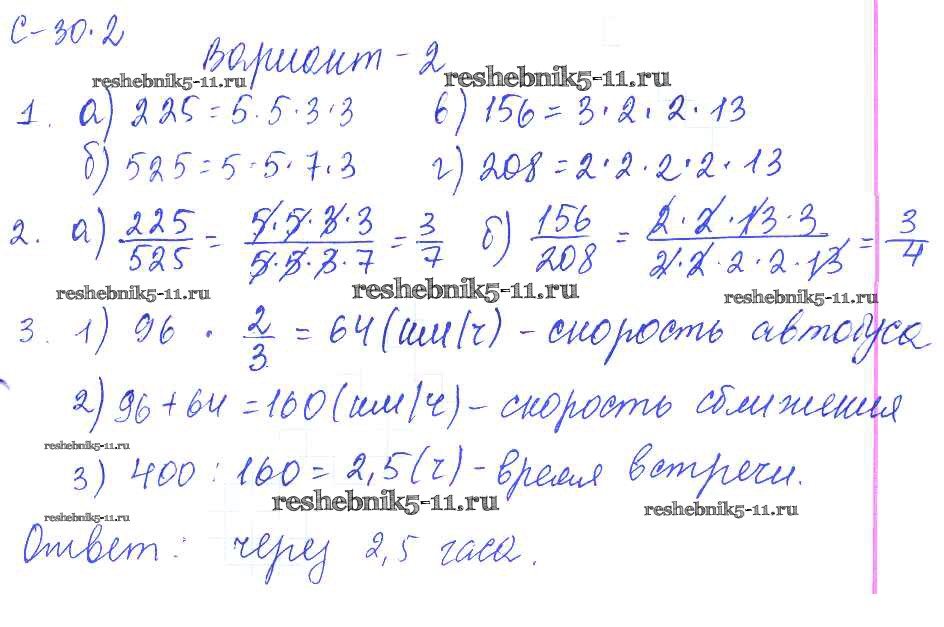 С-30.2
Вариант-2
reshebnik5-11.ru reshebnik5-11.ru
1. а) 225 = 5·5·3·3 в) 156 = 3·2·2·13
б) 525 = 5·5·7·3 г) 208 = 2·2·2·2·13
2. а) 225/525 = 5·5·3·3/5·5·3·7 = 3/7 б) 156/208 = 2·2·13·3/2·2·2·2·13 = 3/4
reshebnik5-11.ru reshebnik5-11.ru reshebnik5-11.ru
3. 1) 96 · 2/3 = 64 (км/ч) - скорость автобуса
2) 96 + 64 = 160 (км/ч) - скорость сближения
reshebnik5-11.ru
3) 400 : 160 = 2,5 (ч) - время встречи.
reshebnik5-11.ru reshebnik5-11.ru reshebnik5-11.ru
Ответ: через 2,5 часа.